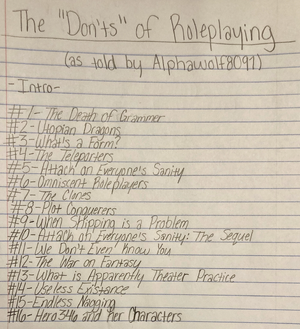 The "Don'ts" of Roleplaying
(as told by Alphawolf8091)
-Intro-
#1- The Death of Grammer
#2- Utopian Dragons
#3- What's a Form?
#4- The Teleporters
#5- Attack on Everyone's Sanity
#6- Omniscent Roleplayers
#7- The Clones
#8- Plot Conquerers
#9- When Shipping is a Problem
#10- Attack on Everyone's Sanity: The Sequel
#11- We Don't Even Know You
#12- The War on Fantasy
#13- What is Apparently Theater Practice
#14- Useless Existance
#15- Endless Nagging
#16- Hero346 and Her Characters